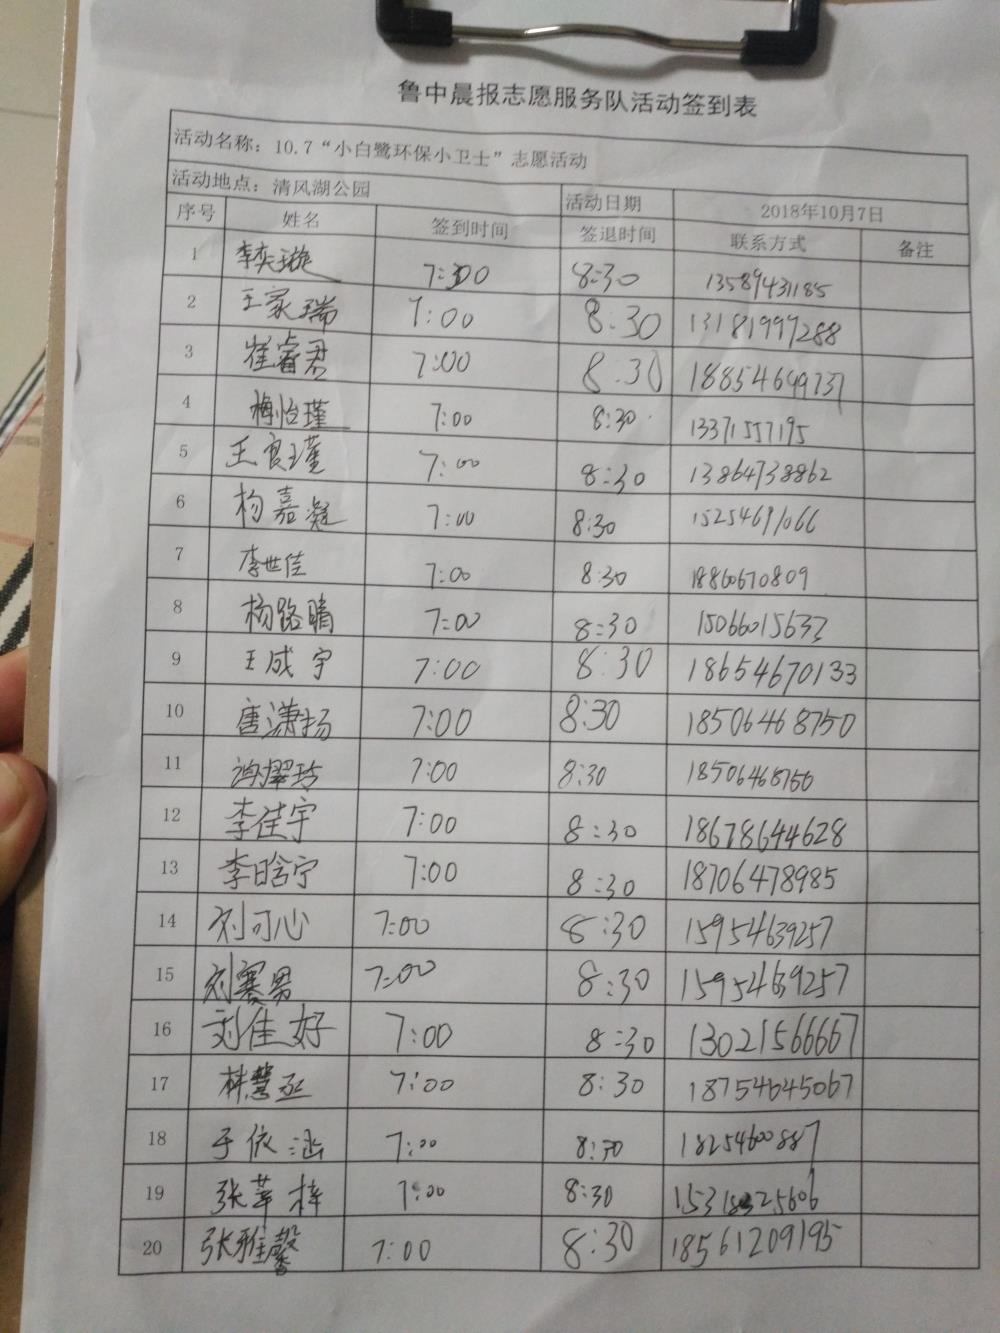 鲁中晨报志愿服务队活动签到表
活动名称：10.7“小白鹭环保小卫士”志愿活动
活动地点：清风湖公园 活动日期 2018年10月7日
序号 姓名 签到时间 签退时间 联系方式 备注
1 李奕璇 7:30 8:30 13589431185
2 王家瑞 7:00 8:30 13181997288
3 崔睿君 7:00 8.30 18854649737
4 梅怡瑾 7:00 8:30 13371557195
5 王良瑾 7:00 8:30 13864738862
6 杨嘉凝 7:00 8:30 15254691066
7 李世佳 7:00 8:30 18860670809
8 杨路晴 7:00 8:30 15066015633
9 王成宇 7:00 8:30 18654670133
10 唐潇扬 7:00 8:30 18506468750
11 7:00 8:30 18506468750
12 李佳宇 7:00 8:30 18678644628
13 李晗宁 7:00 8:30 18706478985
14 刘可心 7:00 8:30 15954639257
15 刘赛男 7:00 8:30 15954639257
16 刘佳好 7:00 8:30 13021566667
17 林慧丞 7:00 8:30 18754645067
18 于依涵 7:00 8:30 18254600887
19 张苹梓 7:00 8:30
20 张雅馨 7:00 8:30 18561209195